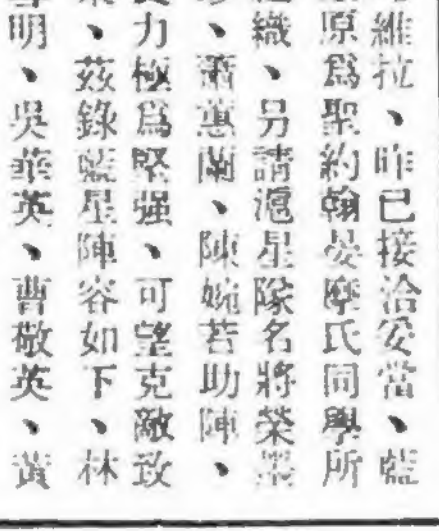 維拉、昨已接洽妥當、藍
原爲聖約翰晏摩氏同學所
織、另請滬星隊名將榮墨
、蕭蕙蘭、陳婉若助陣、
力極爲堅强、可望克敵致
、茲錄藍星陣容如下、林
明、吳華英、曹敬英、黃